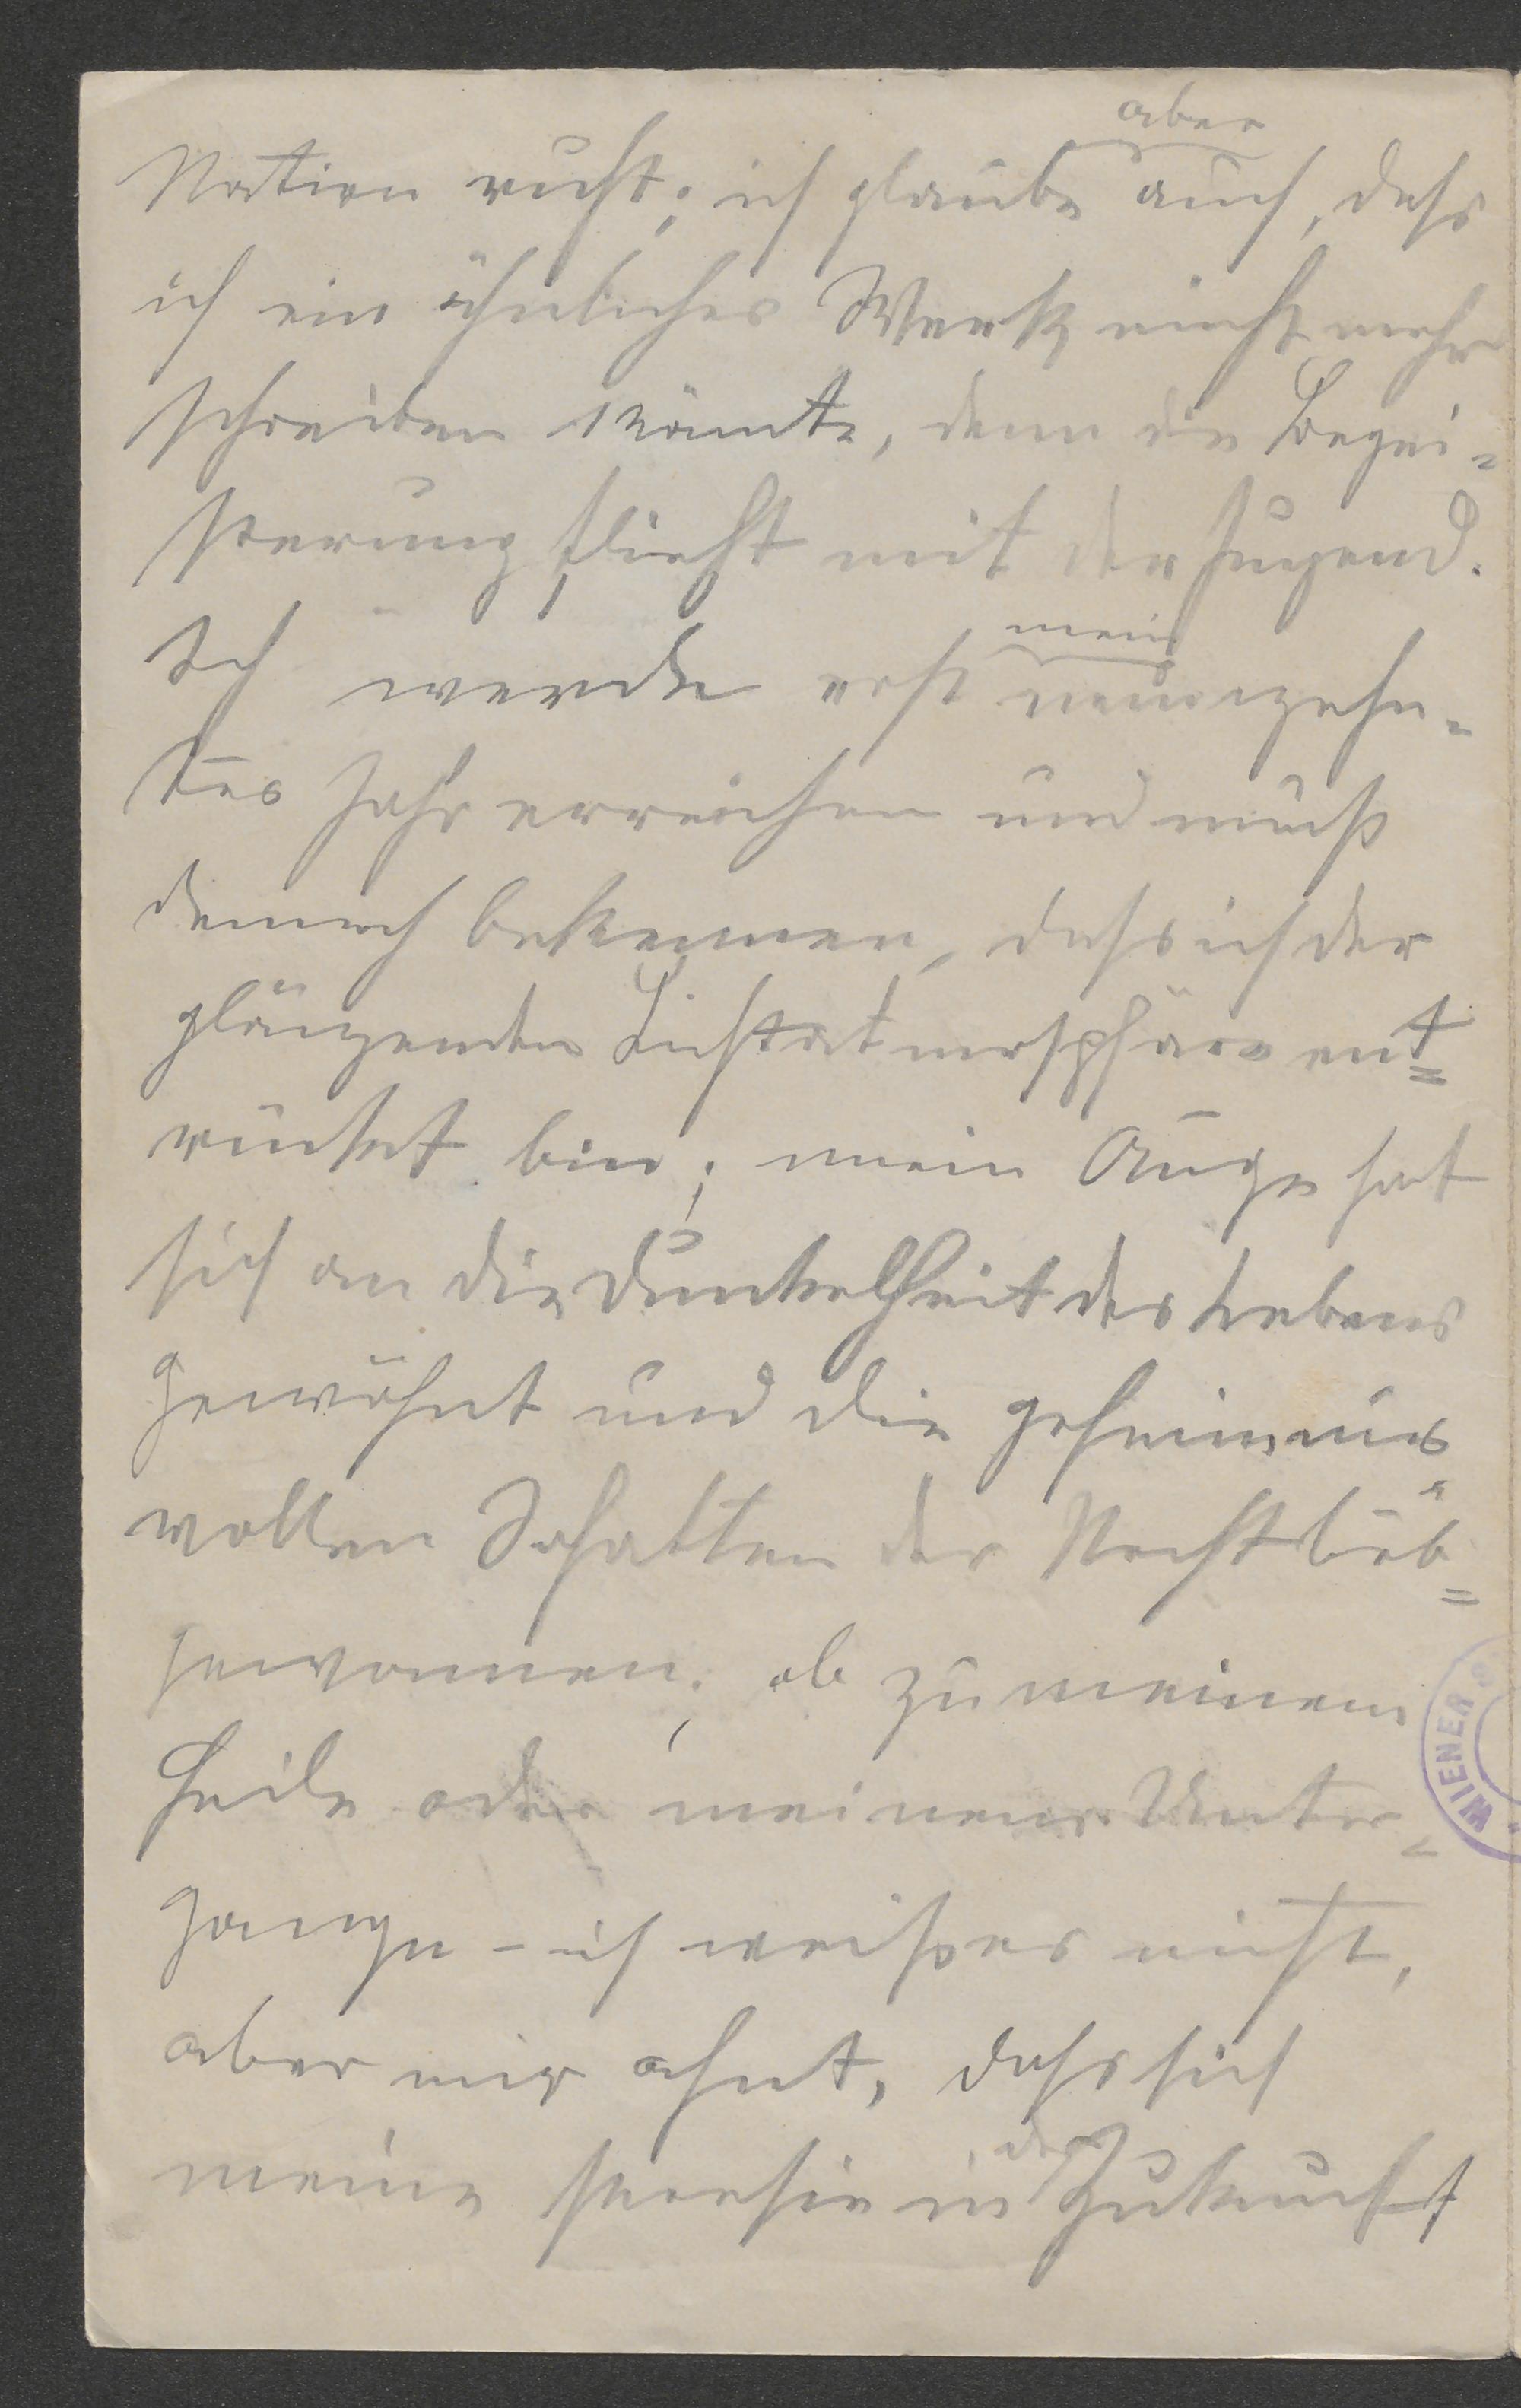 aber
Nation ruht; ich glaube auch, dass
ich ein ähnliches Werk nicht mehr
schreiben könnte, denn die Begei-
sterung flieht mit der Jugend.
mein
Ich werde erst neunzehn-
tes Jahr erreichen und muß
dennoch bekennen, dass ich der
glänzenden Lichtatmosphäre ent=
rückt bin; mein Auge hat
sich an die Dunkelheit des Lebens
gewöhnt und die geheimnis
vollen Schatten der Nacht lieb=
gewonnen; ob zu meinem
Heile oder meinem Unter-
gange - ich weiß es nicht,
aber mir ahnt, dass sich
der
meine Poesie in Zukunft
WIENER